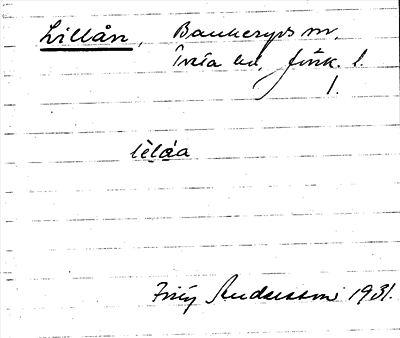 Lillån, Bankeryds sn,
Tveta hd, Jönk. l.
1.
lìlåa
Andersson 1931.